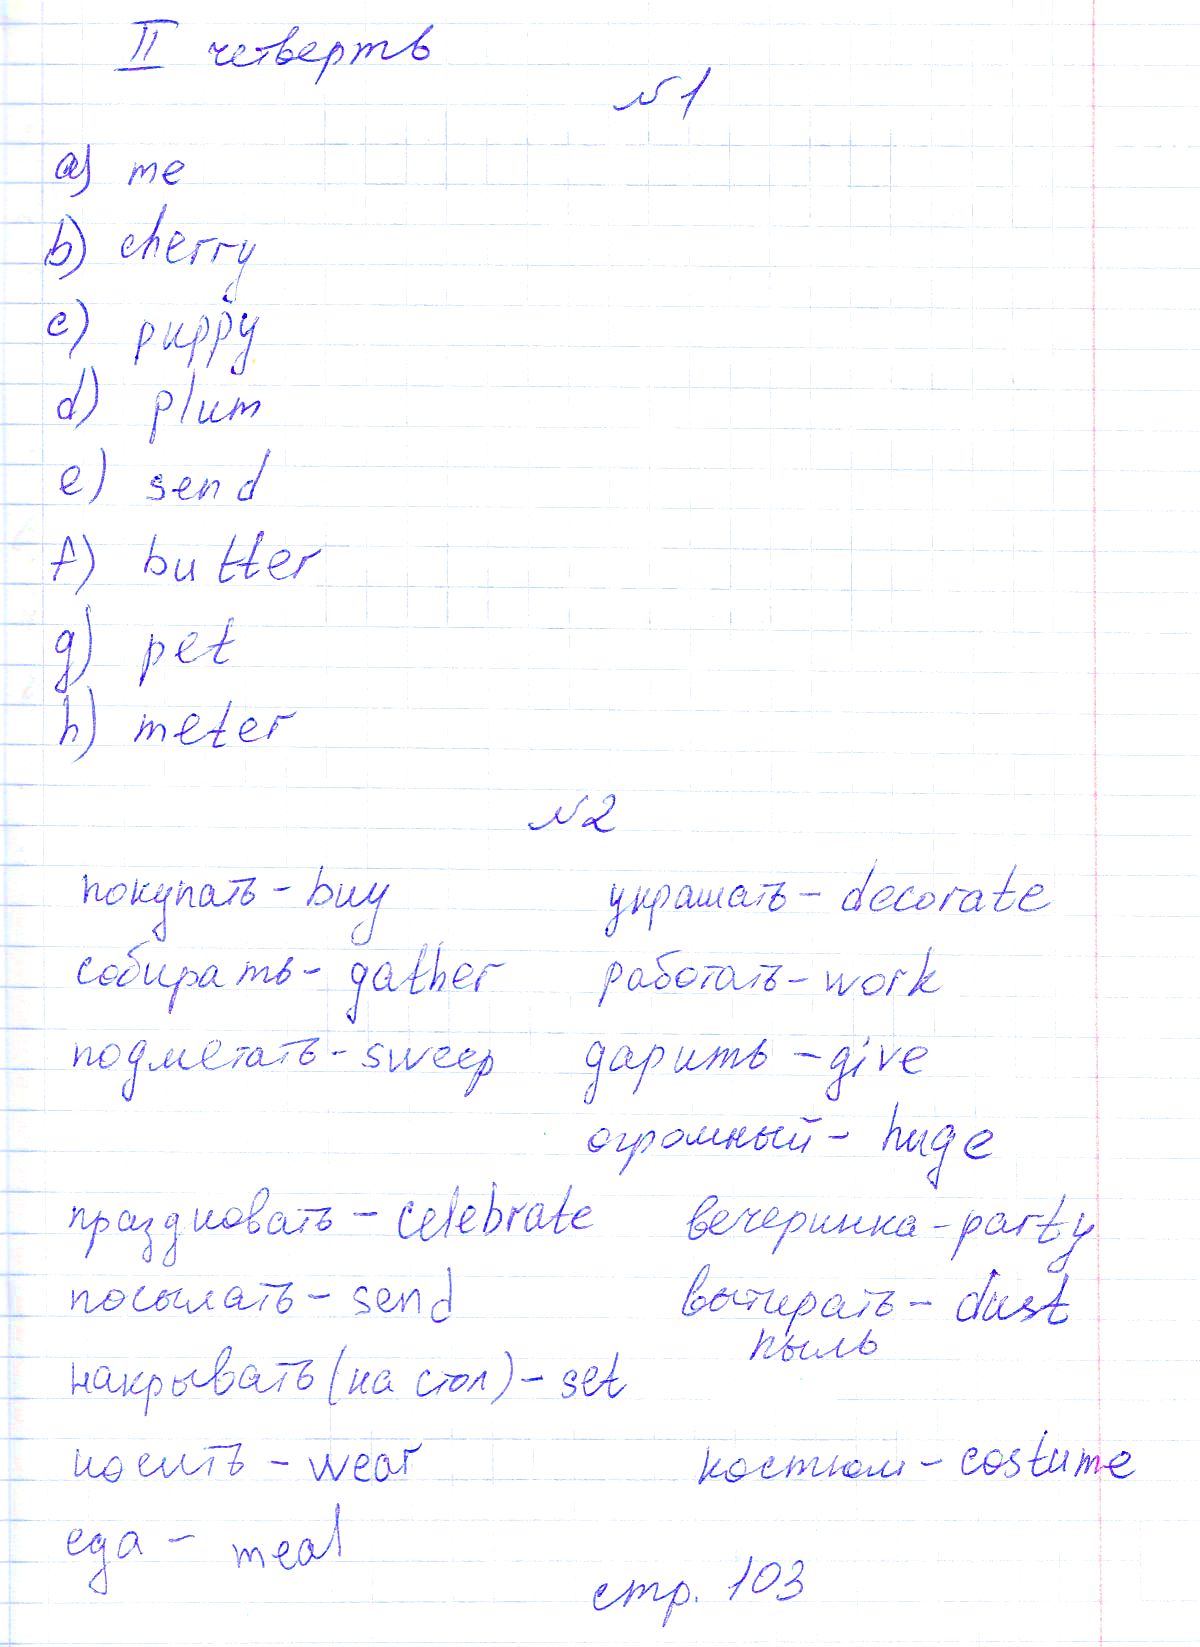 II четверть
№1
a) me
b) cherry
c) puppy
d) plum
e) send
f) butter
g) pet
h) meter
№2
покупать - buy украшать - decorate
собирать - gather работать - work
подметать - sweep дарить - give
огромный - huge
праздновать - celebrate вечеринка - party
посылать - send вытирать - dust
пыль
накрывать (на стол) - set
носить - wear костюм - costume
еда - meal
стр. 103